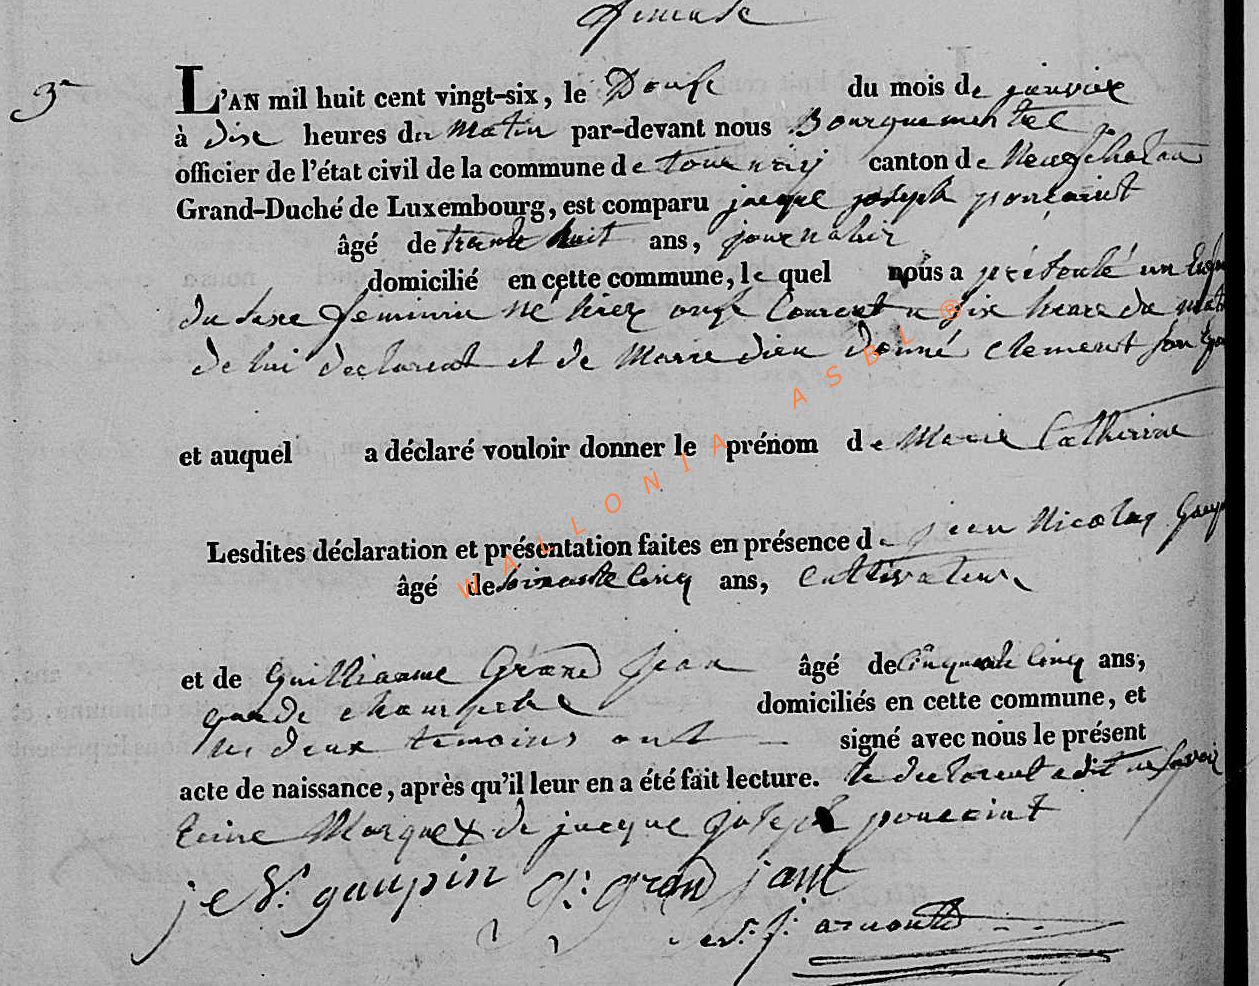 3e
L'AN mil huit cent vingt-six, le Douse du mois de janvier
à dixe heures du Matin par-devant nous Bourguementre
officier de l'état civil de la commune de tournay canton de Neufchateau
Grand-Duché de Luxembourg, est comparu jacque joseph ponçaint
âgé de trente huit ans, journalier
domicilié en cette commune, le quel nous a présenté un
du sexe feminin né hier onse Courent a dix heure du mat
de lui declarent et de Marie dieu donné clement son
et auquel a déclaré vouloir donner le prénom de Marie Catherine
Lesdites déclaration et présentation faites en présence de jean Nicolas
âgé de soixante cinq ans, cultivateur
et de Guilliaume Grand jean âgé de Cinquante Cinq ans,
garde champetre domiciliés en cette commune, et
les deux temoins ont signé avec nous le présent
acte de naissance, après qu'il leur en a été fait lecture. le declarent a dit ne savoir
Marque X de jacque joseph poncaint
je N: gaupin g: grand jant
arnould
WALLONIA ASBL ®